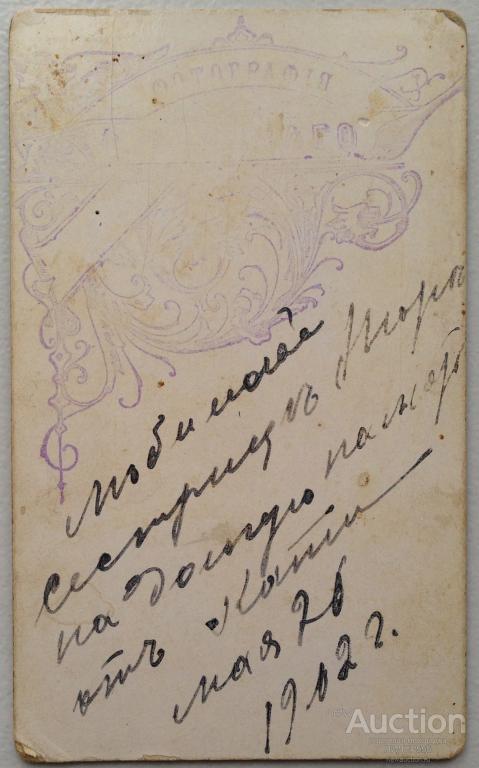 ФОТОГРАФІЯ
АГО
Любимой
сестрицѣ Нюрѣ
на долгую память
отъ Кати
мая 26
1902 г.
Auction